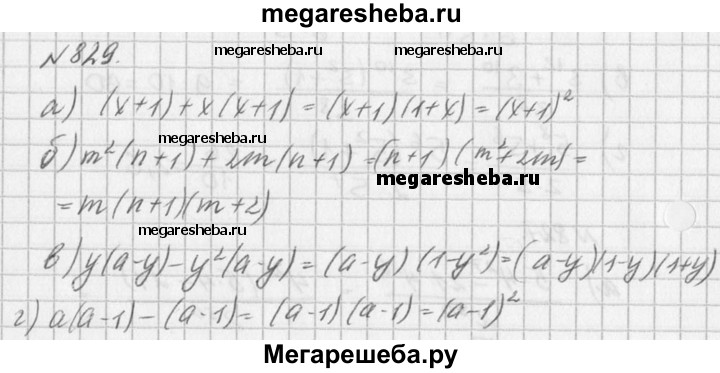 megaresheba.ru
N829.
megaresheba.ru megaresheba.ru
а) (x+1)+x(x+1) = (x+1)(1+x) = (x+1)²
megaresheba.ru
б) m²(n+1)+2m(n+1) = (n+1)(m²+2m) =
megaresheba.ru
= m(n+1)(m+2)
megaresheba.ru
в) y(a-y)-y²(a-y) = (a-y)(1-y²) = (a-y)(1-y)(1+y)
г) a(a-1)-(a-1) = (a-1)(a-1) = (a-1)²
megaresheba.ru
Мегарешеба.ру